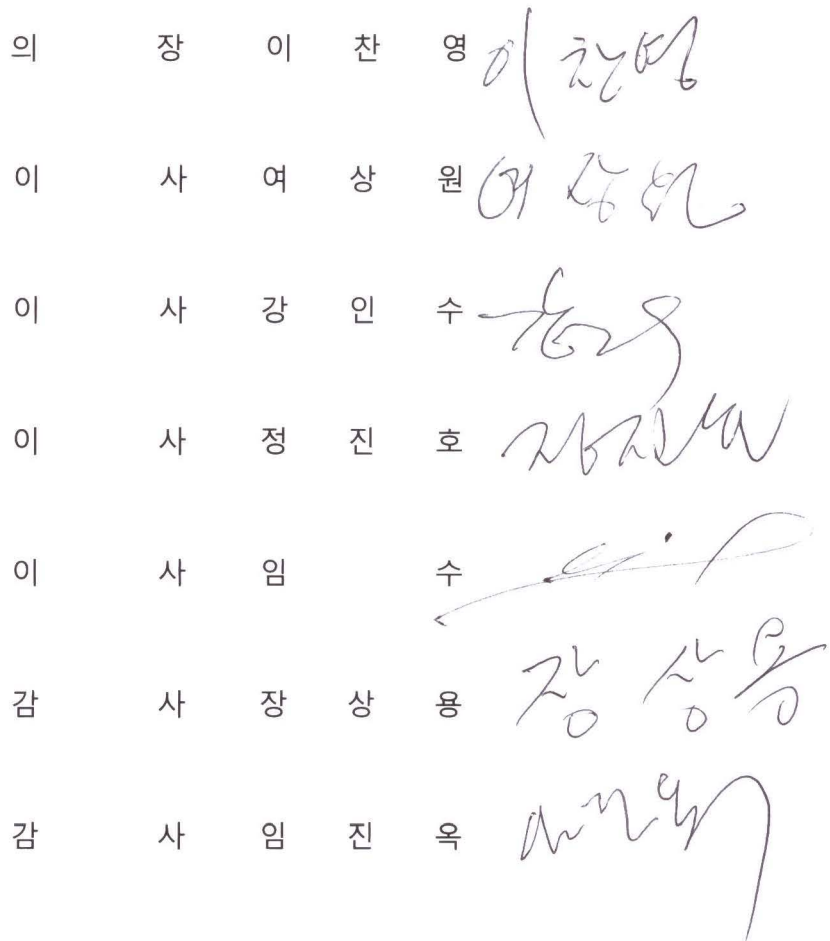 의 장 이 찬 영 이찬영
이 사 여 상 원 여상원
이 사 강 인 수
이 사 정 진 호
이 사 임 수
감 사 장 상 용 장상용
감 사 임 진 옥